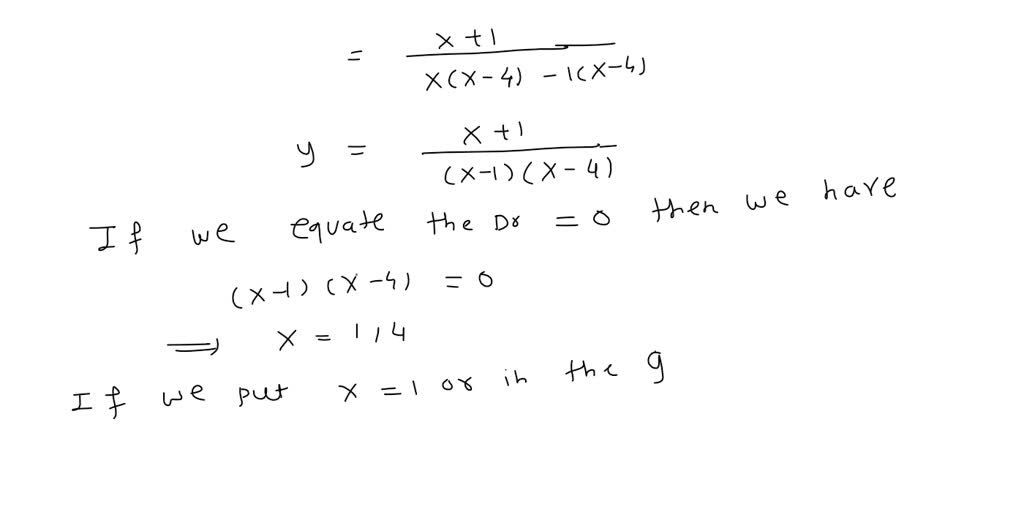 = x+1 / x(x-4) -1(x-4)
y = x+1 / (x-1)(x-4)
If we equate the Dr = 0 then we have
(x-1)(x-4) = 0
⟹ x = 1,4
If we put x = 1 or in the g